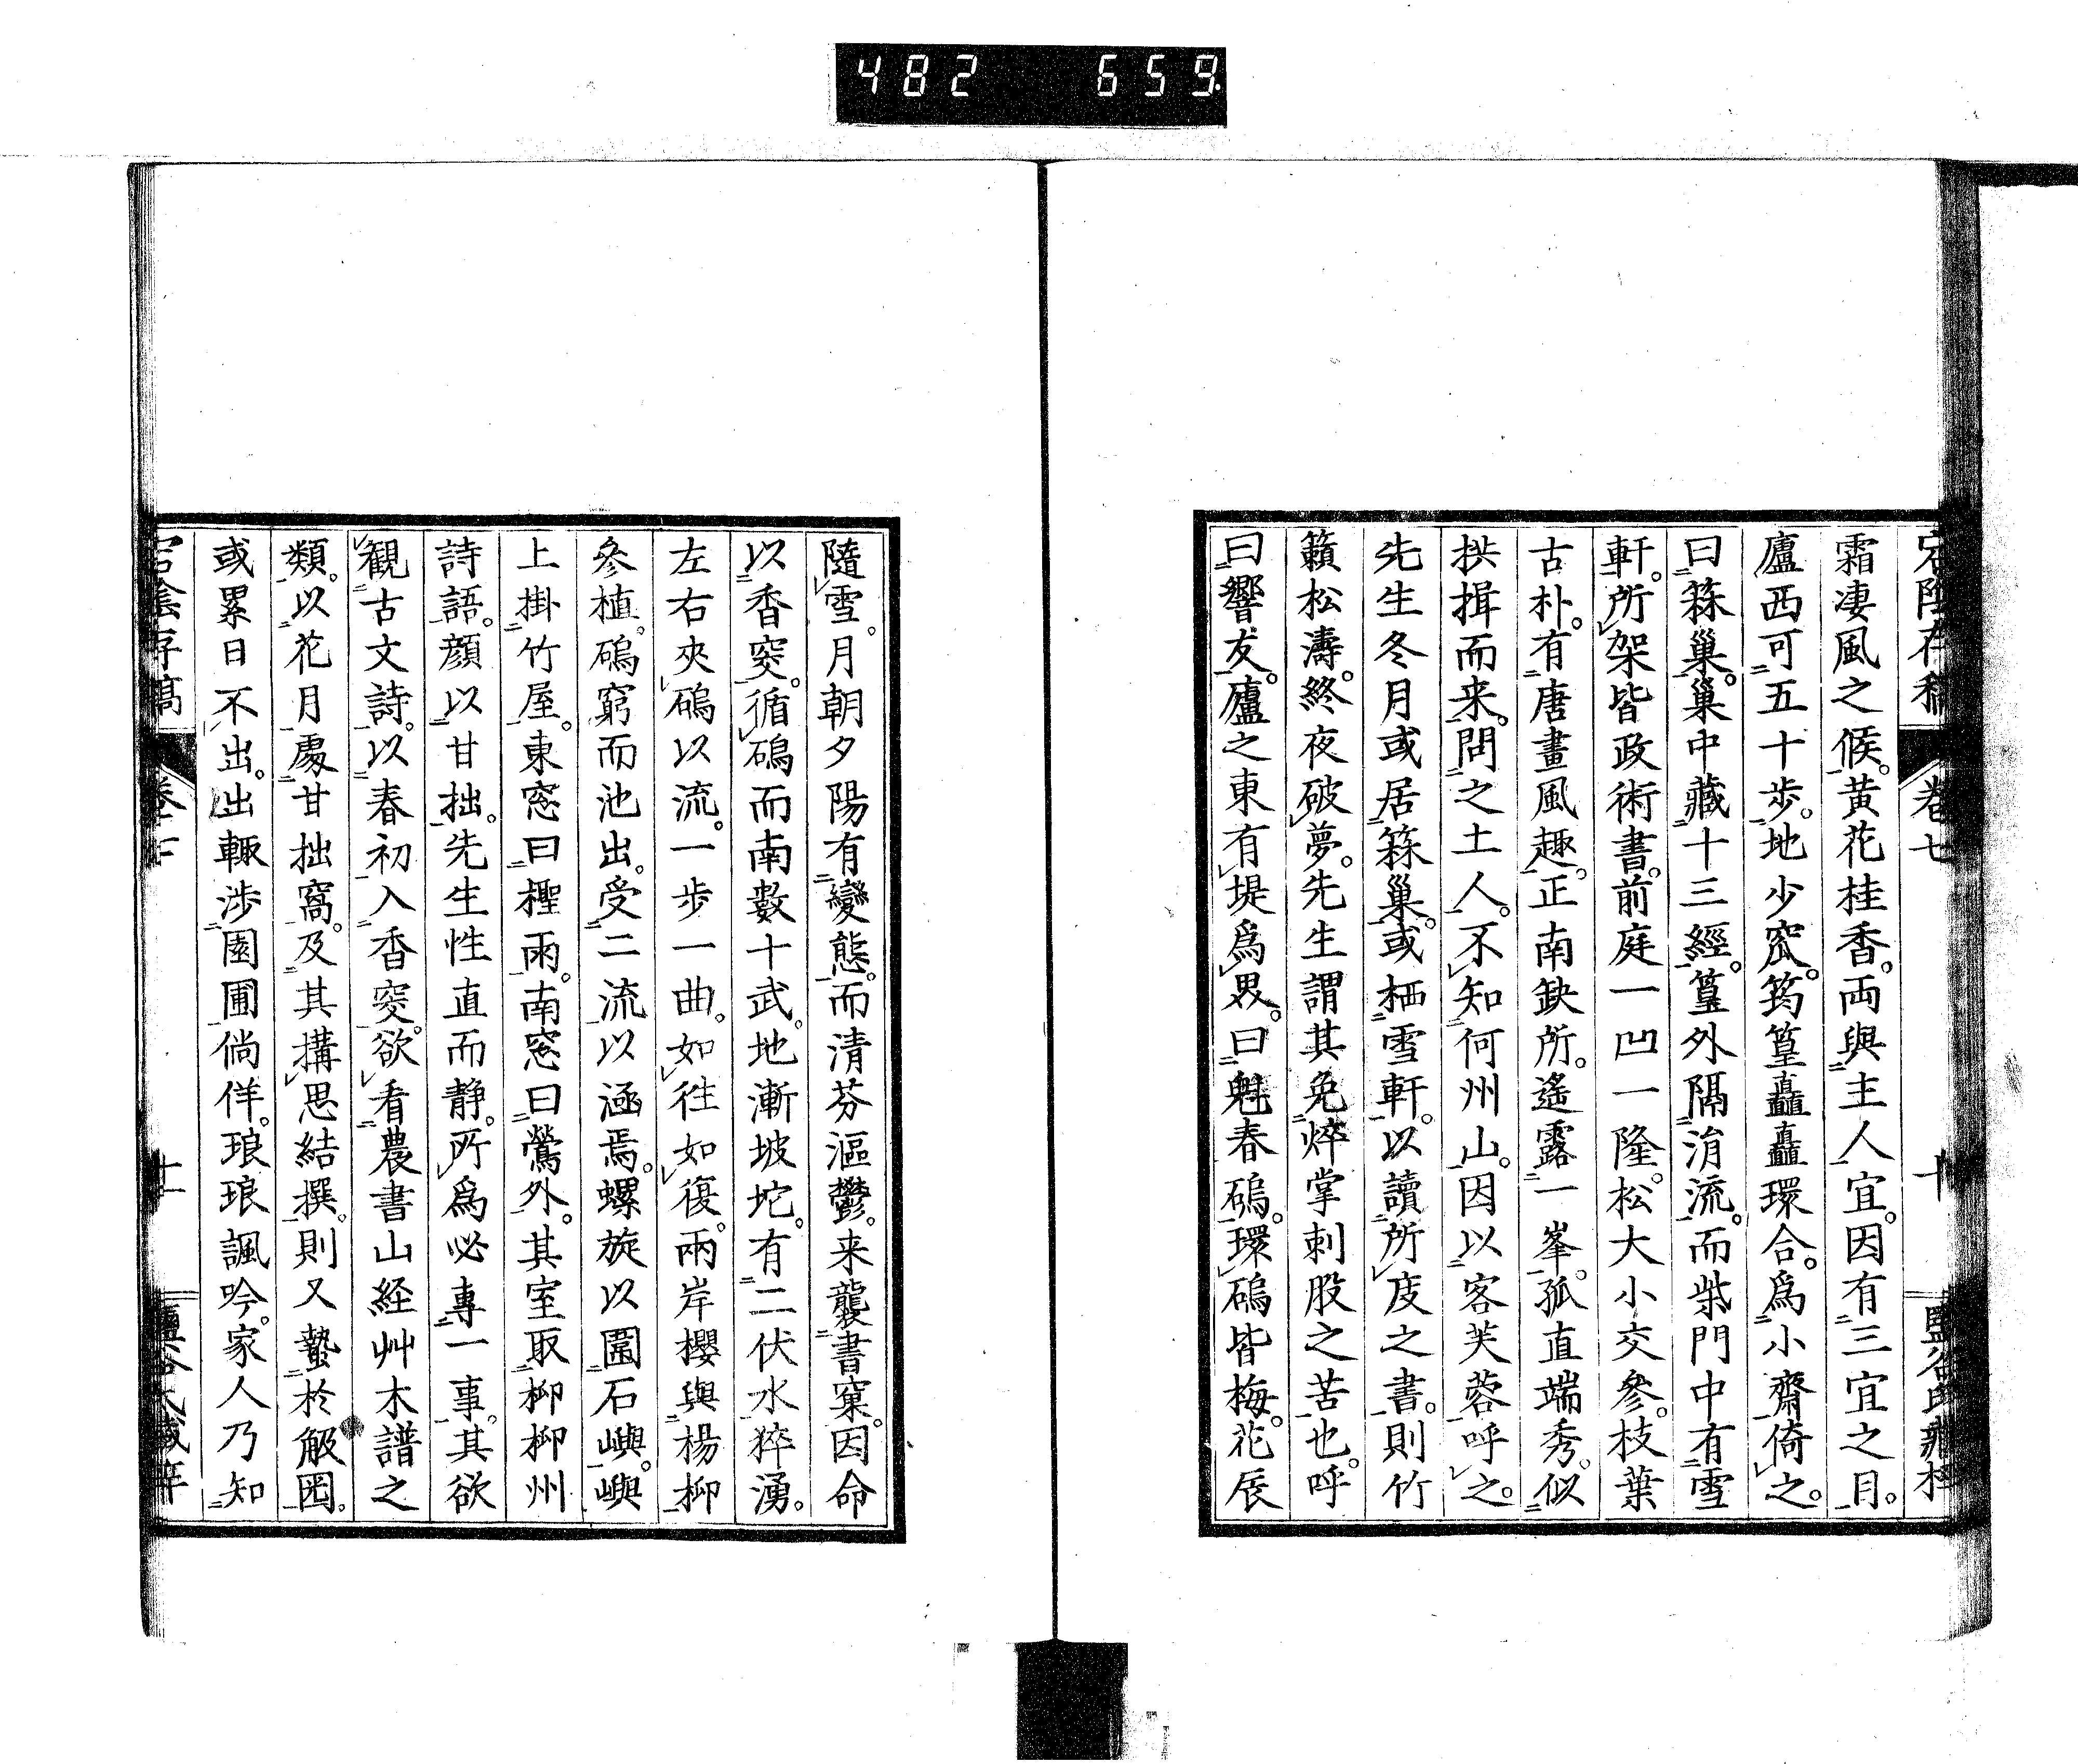 482 659
宕陰存稿 卷七 十
霜凄風之候。黄花桂香。両與主人宜。因有三宜之目。
廬西可五十歩。地少窊。筠篁矗矗環合。爲小齋倚之。
曰箖巢。巢中藏十三經。篁外隔涓流。而柴門中有雪
軒。所架皆政術書。前庭一凹一隆。松大小交參。枝葉
古朴。有唐畫風趣。正南缺所。遙露一峯。孤直端秀。似
拱揖而来。問之土人。不知何州山。因以客芙蓉呼之。
先生冬月或居箖巢。或栖雪軒。以讀所庋之書。則竹
籟松濤。終夜破夢。先生謂其免焠掌刺股之苦也。呼
曰響友。廬之東有堤爲界。曰魁春磡。環磡皆梅。花辰
隨雪。月朝夕陽有變態。而清芬漚鬱。来襲書窠。因命
以香窔。循磡而南數十武。地漸坡坨。有二伏水猝湧。
左右夾磡以流。一歩一曲。如徃如復。兩岸櫻與楊柳
參植。磡窮而池出。受二流以涵焉。螺旋以圍石嶼。嶼
上掛竹屋。東窓曰檉雨。南窓曰鶯外。其室取柳柳州
詩語。顔以甘拙。先生性直而静。所爲必專一事。其欲
觀古文詩。以春初入香窔。欲看農書山経艸木譜之
類。以花月處甘拙窩。及其搆思結撰。則又蟄於觙圀。
或累日不出。出輙渉園圃倘佯。琅琅諷吟。家人乃知
宕陰存稿 卷七 十一